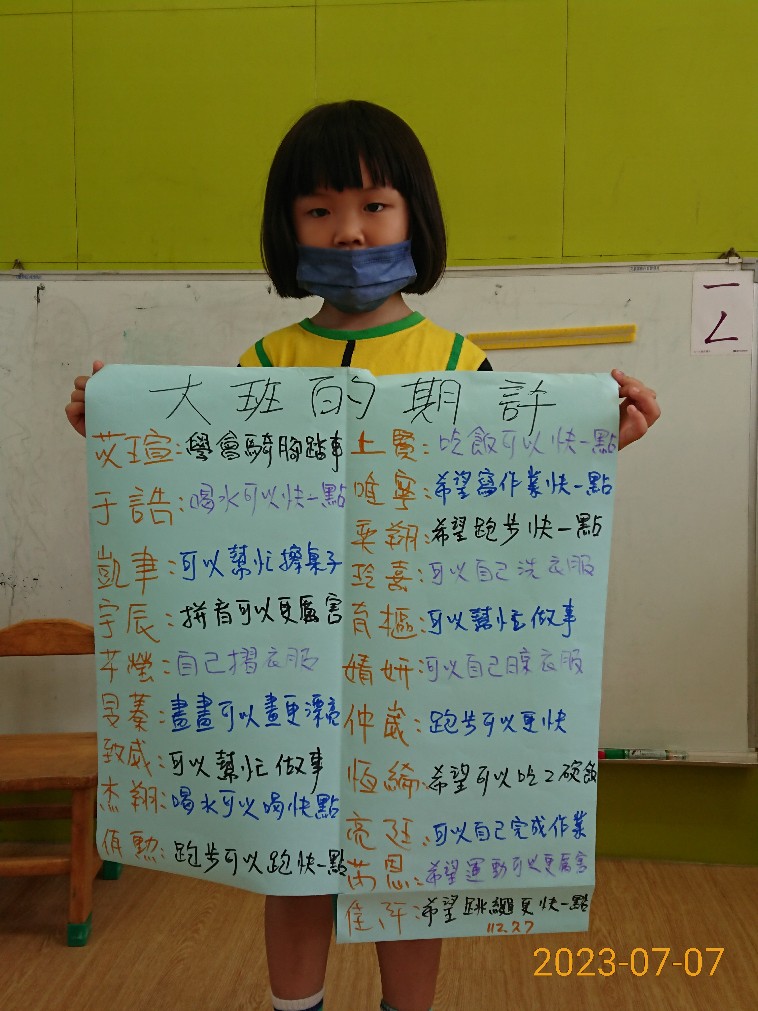 大班的期許
苡瑄:學會騎腳踏車
于誥:喝水可以快一點
凱聿:可以幫忙擦桌子
宇辰:拼音可以更厲害
苹瑩:自己摺衣服
旻蓁:畫畫可以畫更漂亮
致威:可以幫忙做事
杰翔:喝水可以喝快點
佴勳:跑步可以跑快一點
上賢:吃飯可以快一點
唯寧:希望寫作業快一點
奕翔:希望跑步快一點
玲熹:可以自己洗衣服
育樞:可以幫忙做事
婿妍:可以自己晾衣服
仲崴:跑步可以更快
恆締:希望可以吃2碗飯
亮廷:可以自己完成作業
芮恩:希望運動可以更厲害
:希望跳繩更快一點
112.7.7
ㄧ
ㄥ
2023-07-07